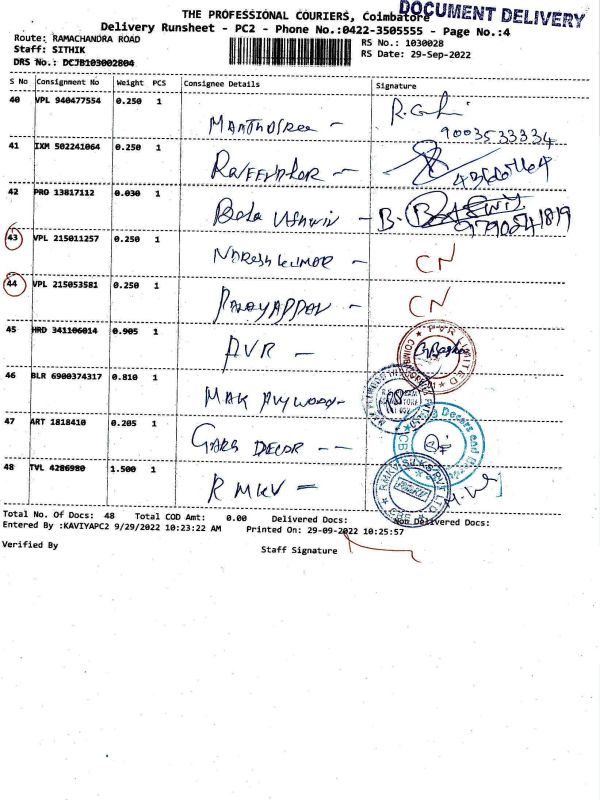 DOCUMENT DELIVERY
THE PROFESSIONAL COURIERS, Coimbatore
Delivery Runsheet - PC2 - Phone No.:0422-3505555 - Page No.:4
Route: RAMACHANDRA ROAD
RS No.: 1030028
Staff: SITHIK
RS Date: 29-Sep-2022
DRS No.: DCJB103002804
S No Consignment No Weight PCS Consignee Details Signature
40 VPL 940477554 0.250 1
R.G
9003533334
41 IXM 502241064 0.250 1
42 PRO 13817112 0.030 1
Bala Ashwin - B.
43 VPL 215011257 0.250 1
Nareshkumar - CN
44 VPL 215053581 0.250 1
- CN
45 HRD 341106014 0.905 1
PVR -
PVR LIMITED
46 BLR 6900374317 0.810 1
MAK PLYWOOD -
47 ART 1818410 0.205 1
GARG DECOR --
Decors and
48 TVL 4286980 1.500 1
RMKV =
RMKV SILKS PVT LTD
RMKV
Total No. Of Docs: 48 Total COD Amt: 0.00 Delivered Docs: Non Delivered Docs:
Entered By :KAVIYAPC2 9/29/2022 10:23:22 AM Printed On: 29-09-2022 10:25:57
Verified By
Staff Signature